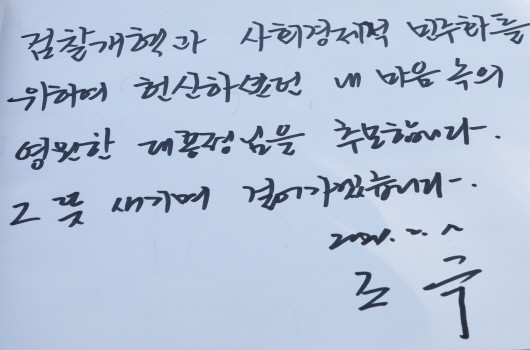 검찰개혁과 사회경제적 민주화를
위하여 헌신하셨던 내 마음 속의
영원한 대통령님을 추모합니다.
그 뜻 새기며 걸어가겠습니다.
조 추